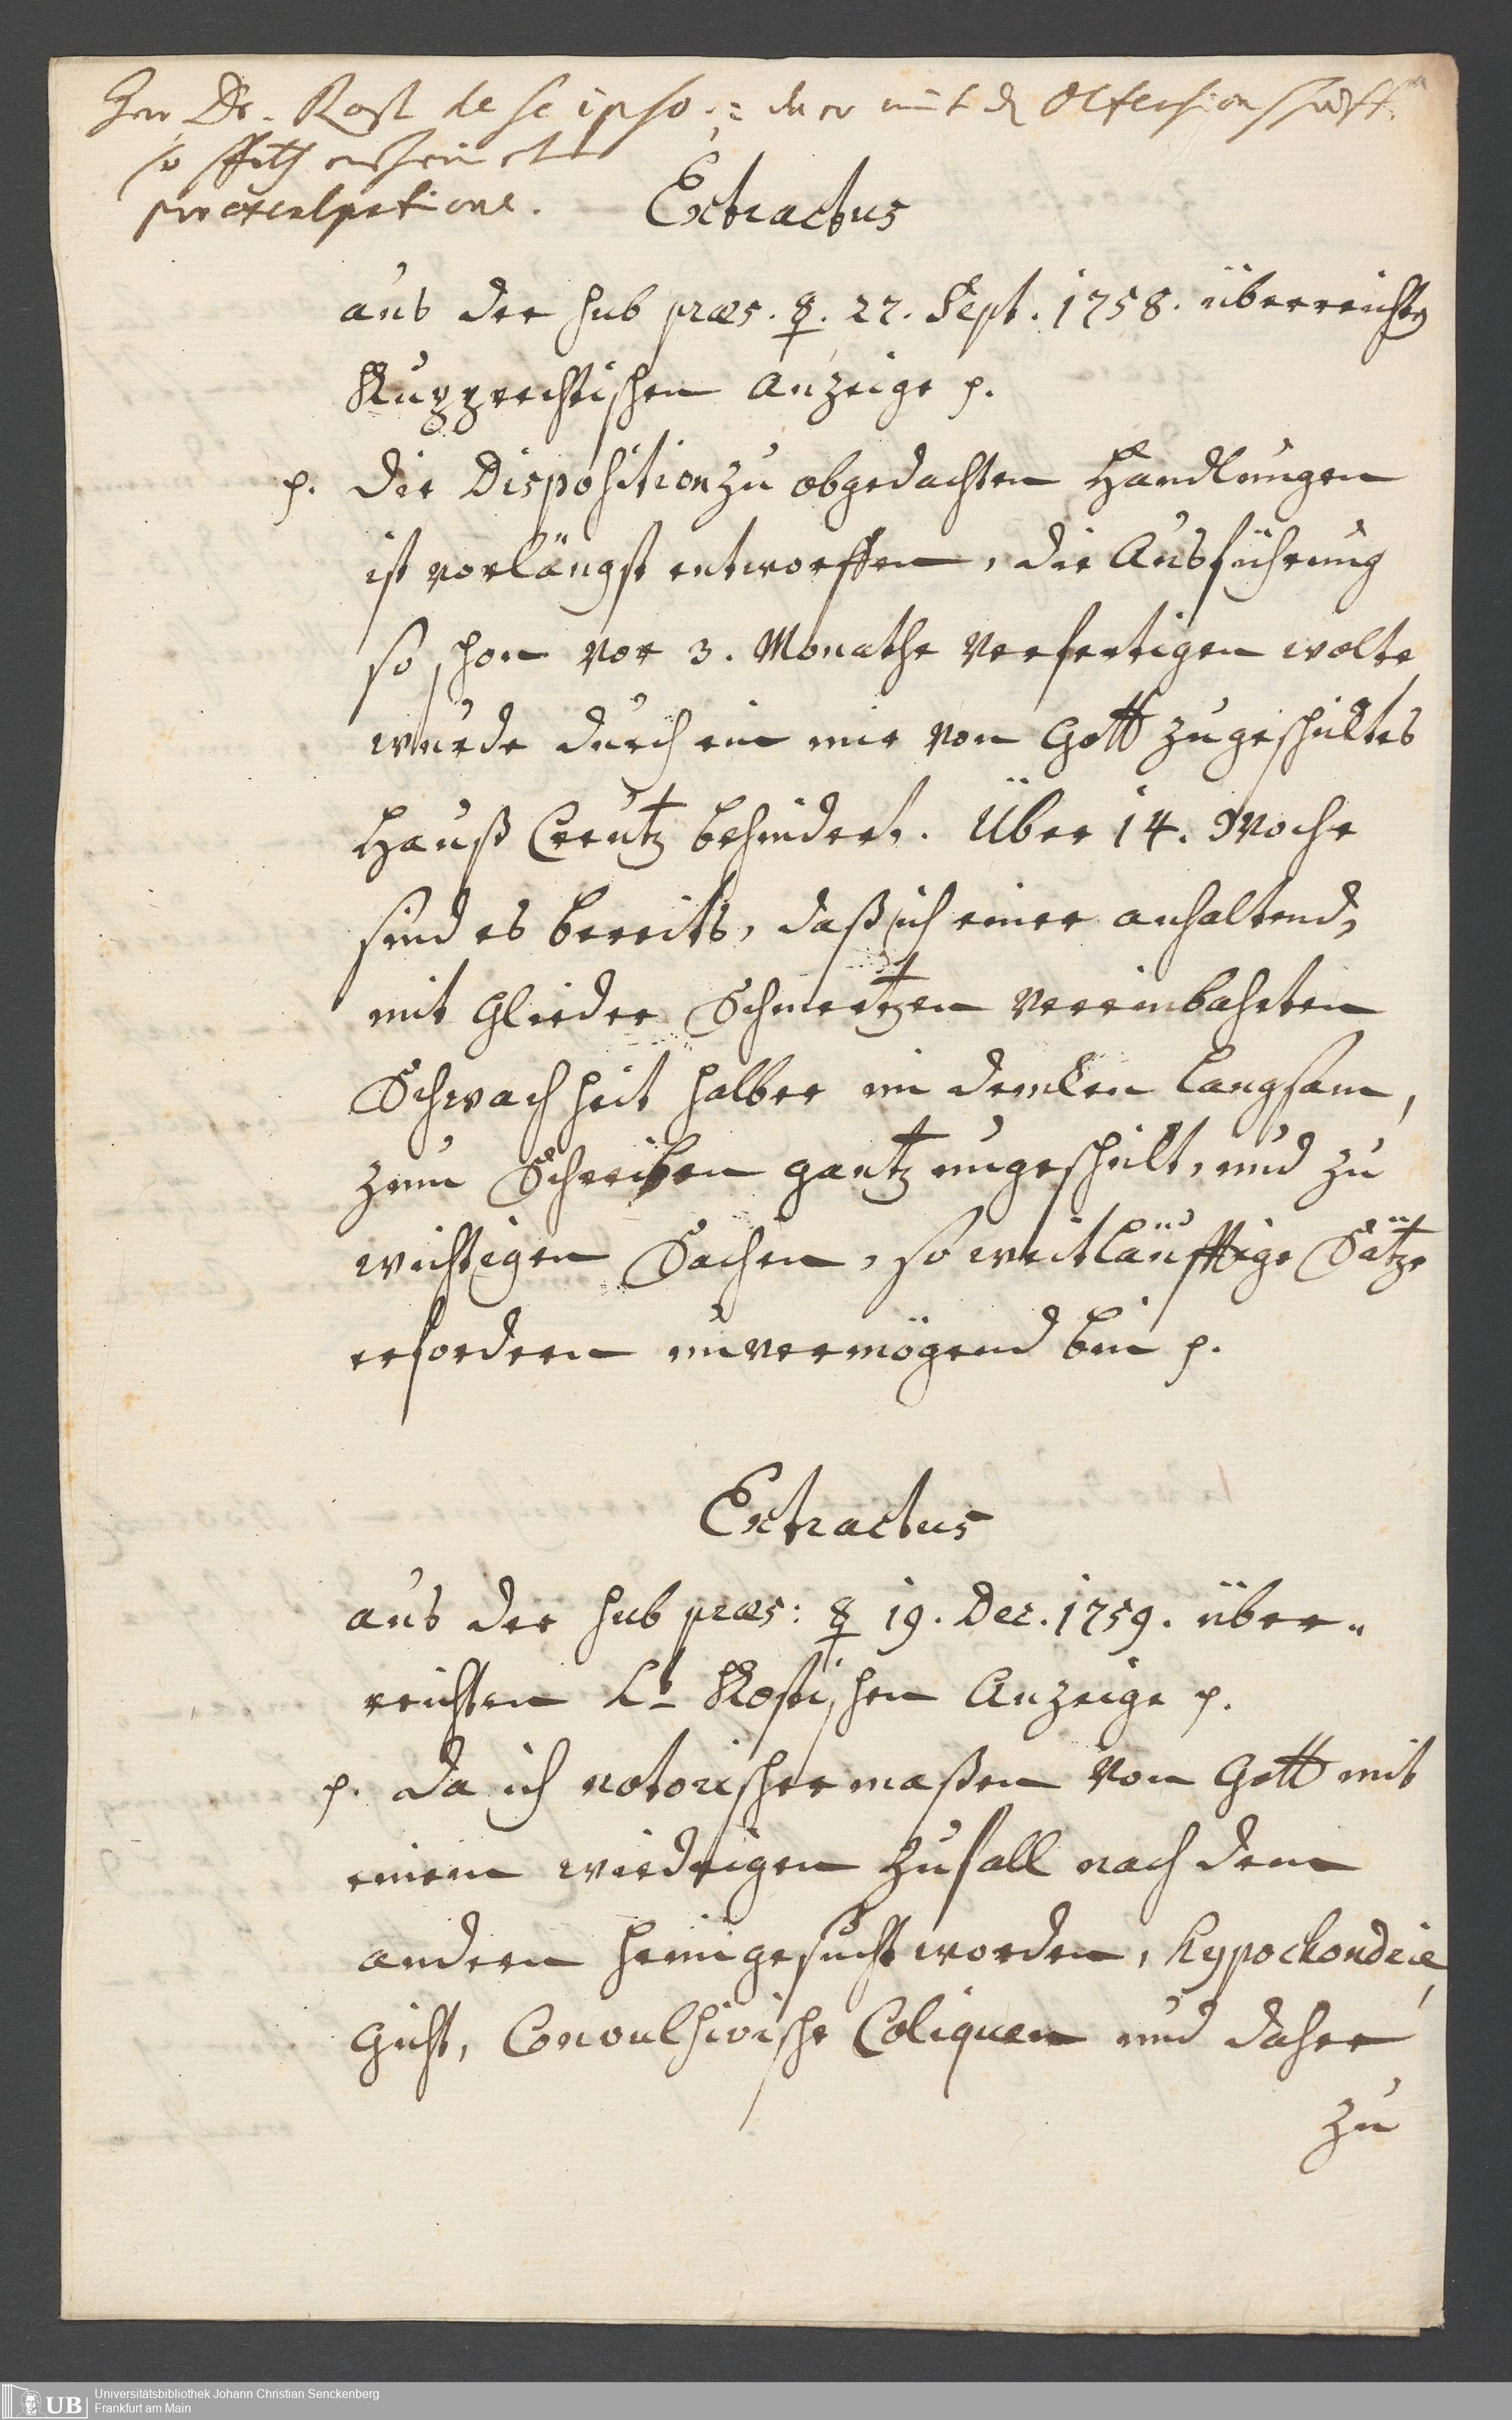 Herr Dr. Rost de se ipso: da er mit der Defensionsschrifft
so spath
pro exculpatione.
Extractus
aus der sub præs. 27. Sept. 1758. überreichten
Rupprechtischen Anzeige p.
p. Die Disposition zu obgedachten Handlungen
ist vorlängst entworffen, die Ausführung
so schon vor 3. Monathe verfertigen wolte,
wurde durch ein mir von Gott zugeschicktes
Hauß Creutz behindert. Über 14. Woche
sind es bereits, daß ich einer anhaltend,
mit Glieder Schmertzen vereinbahrten
Schwachheit halber im dencken langsam,
zum Schreiben gantz ungeschickt, und zu
wichtigen Sachen, so weitläufftige Sätze
erfordern unvermögend bin p.
Extractus
aus der sub præs: 19. Dec. 1759. über„
reichten Lt. Rostischen Anzeige p.
p. Da ich notorischermaßen von Gott mit
einem wiedrigen Zufall nach dem
andern heimgesucht worden, Hypochondrie,
Gicht, Convulsivische Coliquen und daher
zu
UB
Universitätsbibliothek Johann Christian Senckenberg
Frankfurt am Main